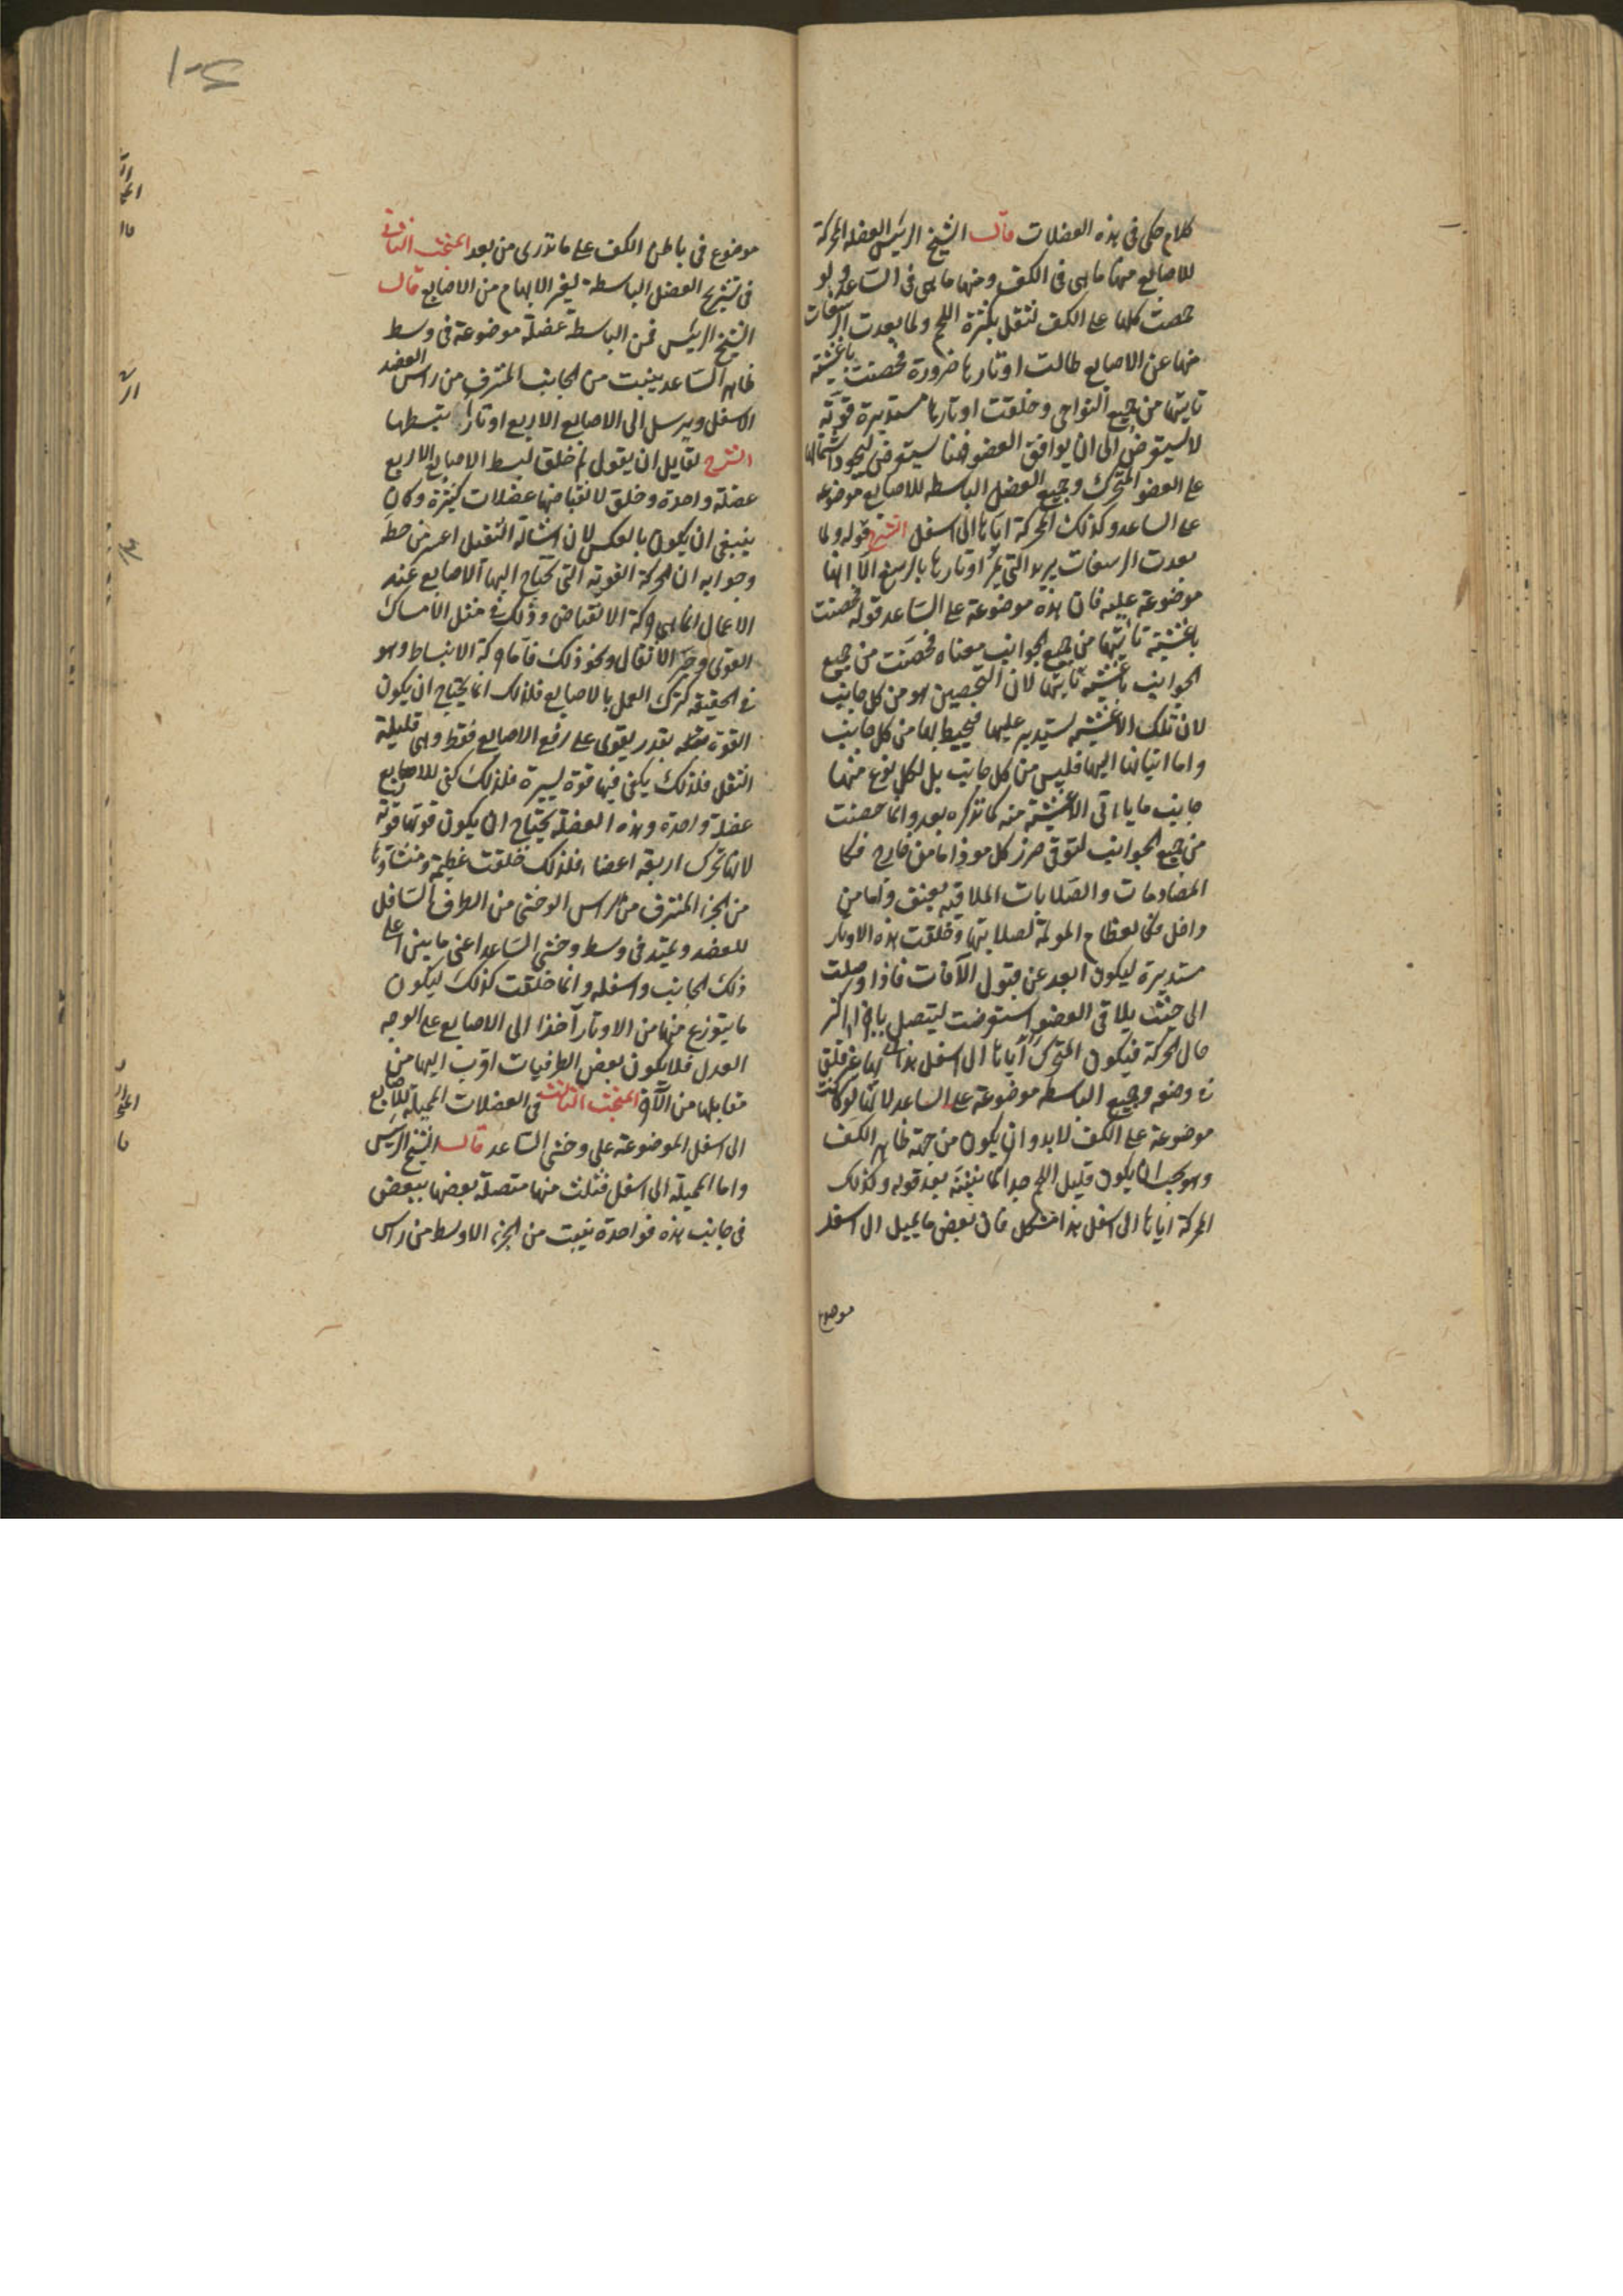 كلام كلى فى هذه العضلات قال الشيخ الرئيس العضله المحركة
للاصابع منها ما هى فى الكف ومنها ما هى فى الساعد ولو
جمعت كلها على الكف لثقل بكثرة اللحم ولما بعدت الرسغيات
منها عن الاصابع طالت اوتارها ضرورة فحصنت باغشية
تاتيها من جميع النواحى وخلقت اوتارها مستديرة قوية
لا تستعرض الى ان يوافق العضو فهنا يستعرض ليجود اشتمالها
على العضو المتحرك وجميع العضل الباسطه للاصابع موضوعه
على الساعد وكذلك المحركة اياها الى اسفل الشرح قوله ولما
بعدت الرسغيات يريد التى تمر اوتارها بالرسغ لا انها
موضوعة عليه فان هذه موضوعة على الساعد قوله فحصنت
باغشية تاتيها من جميع الجوانب معناه فحصنت من جميع
الجوانب باغشية تاتيها لان التحصين هو من كل جانب
لان تلك الاغشية تستدير عليها فيحيط بها من كل جانب
واما اتيانها اليها فليس من كل جانب بل لكل نوع منها
جانب ما ياتى الاغشية منه كما نذكره بعد وانما حصنت
من جميع الجوانب لتوقى ضرر كل موذ اما من خارج فكا
المصادمات والصلابات الملاقيه بعنف واما من
داخل فكالعظام المولمة لصلابتها وخلقت هذه الاوتار
مستديرة ليكون ابعد عن قبول الآفات فاذا وصلت
الى حيث يلاقى العضو استعرضت ليتصل باجزا اكثر
حال الحركة فيكون المتحرك اياها الى اسفل هذا ايضا غير قلق
فى وضعه وجميع الباسطه موضوعة على الساعد لانها لو كانت
موضوعة على الكف لابد وان يكون من جهة ظاهر الكف
وهو يجب ان يكون قليل اللحم جدا كما نبينه بعد قوله وكذلك
المحركة اياها الى اسفل هذا مشكل فان بعض ما يميل الى اسفل
موضوع
موضوع فى باطن الكف على ما تدرى من بعد المبحث الثانى
فى تشريح العضل الباسطة لغير الابهام من الاصابع قال
الشيخ الرئيس فمن الباسطة عضلة موضوعة فى وسط
ظاهر الساعد ينبت من الجانب المشرف من راس العضد
الاسفل ويرسل الى الاصابع الاربع اوتارا يبسطها
الشرح لقايل ان يقول لم خلق لبسط الاصابع الاربع
عضلة واحدة وخلق لانقباضها عضلات كثيرة وكان
ينبغى ان يكون بالعكس لان اشالة الثقيل اعسر من حطه
وجوابه ان الحركة القوية التى تحتاج اليها الاصابع عند
الاعمال انما هى حركة الانقباض وذلك فى مثل الامساك
القوى وجر الاثقال ونحو ذلك فاما حركة الانبساط وهو
فى الحقيقه كترك العمل بالاصابع فلذلك انما يحتاج ان يكون
القوة بقدر يقوى على رفع الاصابع فقط وهى قليلة
الثقل فلذلك يكفى فيها قوة يسيرة فلذلك كفى للاصابع
عضلة واحدة وهذه العضلة يحتاج ان يكون قوتها قوية
لانها تحرك اربعة اعضا فلذلك خلقت عظيمة ومنشاوها
من الجزء المشرف من الراس الوحشى من الطرف السافل
للعضد ويمتد فى وسط وحشى الساعد اعنى ما بين اعلى
ذلك الجانب واسفله وانما خلقت كذلك ليكون
ما يتوزع منها من الاوتار آخذا الى الاصابع على الوجه
العدل فلا يكون بعض الطرفيات اقرب اليها من
مقابلها من الآخر المبحث الثالث فى العضلات المميلة للاصابع
الى اسفل الموضوعة على وحشى الساعد قال الشيخ الرئيس
واما المميلة الى اسفل فثلث منها متصلة بعضها ببعض
فى جانب هذه فواحدة ينبت من الجزء الاوسط من راس